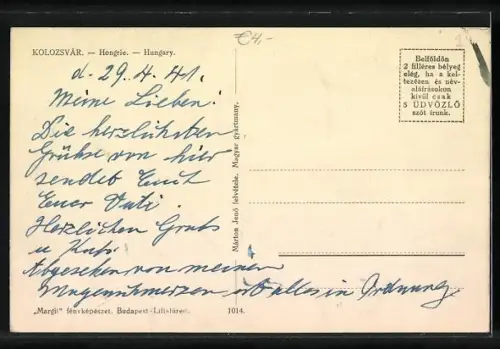 €4,-
KOLOZSVÁR. — Hongrie. — Hungary.
d. 29.4.41.
Meine Lieben!
Die herzlichsten
Grüße von hier
sendet Euch
Euer Vati.
Herzlichen Gruß
u Kuß.
Abgesehen von meinen
Magenschmerzen ist alles in Ordnung.
Belföldön
2 filléres bélyeg
elég, ha a kel-
tezésen és név-
aláírásokon
kívül csak
5 ÜDVÖZLŐ
szót írunk.
Márton Jenő felvétele. Magyar gyártmány.
„Margit" fényképészet. Budapest-Lift-füred.
1014.